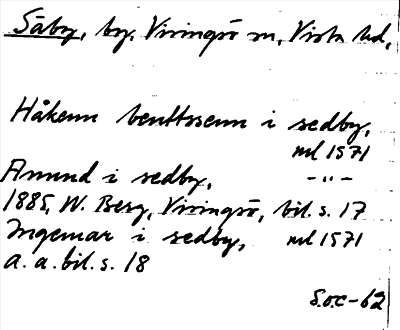 Säby, by, Visingsö sn, Vista hd,
Håkenn benttssenn i sedby,
ml 1571
Amund i sedby, -"-
1885, W. Berg, Visingsö, bil. s. 17
Ingemar i sedby, ml 1571
a. a. bil. s. 18
S.o.c-62